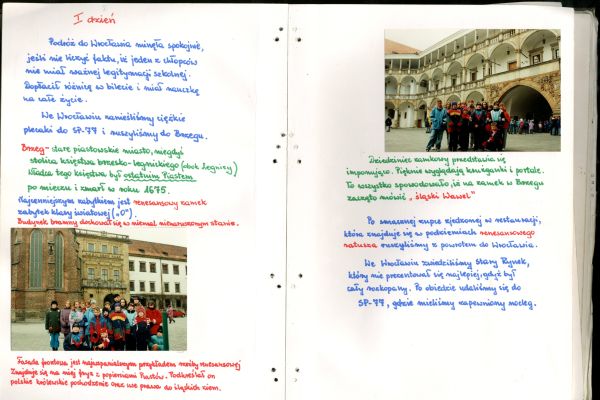 I dzień
Podróż do Wrocławia minęła spokojnie,
jeśli nie liczyć faktu, iż jeden z chłopców
nie miał ważnej legitymacji szkolnej.
Dopłacił różnicę w bilecie i miał nauczkę
na całe życie.
We Wrocławiu zanieśliśmy ciężkie
plecaki do SP-77 i ruszyliśmy do Brzegu.
Brzeg - stare piastowskie miasto, niegdyś
stolica księstwa brzesko-legnickiego (obok Legnicy)
Władca tego księstwa był ostatnim Piastem
po mieczu i zmarł w roku 1675.
Najcenniejszym zabytkiem jest renesansowy zamek
zabytek klasy światowej ("0").
Budynek bramny dochował się w niemal nienaruszonym stanie.
Fasada frontowa jest najwspanialszym przykładem rzeźby renesansowej
Znajduje się na niej fryz z popiersiami Piastów. Podkreślał on
polskie królewskie pochodzenie oraz ich prawa do śląskich ziem.
Dziedziniec zamkowy przedstawia się
imponująco. Pięknie wyglądają krużganki i portale.
To wszystko spowodowało, iż na zamek w Brzegu
zaczęto mówić "śląski Wawel"
Po smacznej zupie zjedzonej w restauracji,
która znajduje się w podziemiach renesansowego
ratusza ruszyliśmy z powrotem do Wrocławia.
We Wrocławiu zwiedziliśmy Stary Rynek,
który nie prezentował się najlepiej, gdyż był
cały rozkopany. Po obiedzie udaliśmy się do
SP-77, gdzie mieliśmy zapewniony nocleg.